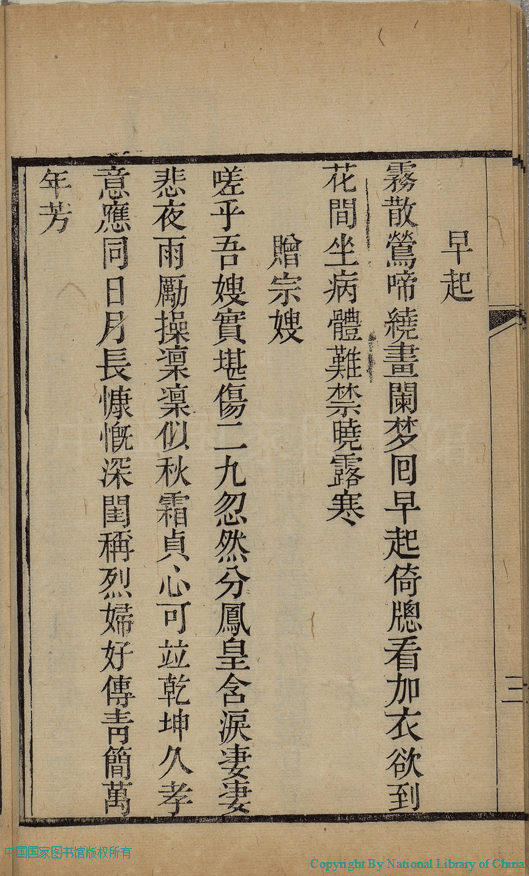 早起
霧散鶯啼繞畫闌梦囘早起倚牕看加衣欲到
花間坐病體難禁曉露寒
贈宗嫂
嗟乎吾嫂實堪傷二九忽然分鳳皇含淚淒淒
悲夜雨勵操凜凜似秋霜貞心可竝乾坤久孝
意應同日月長慷慨深閨稱烈婦好傳靑簡萬
年芳
三
中国国家图书馆版权所有
Copyright By National Library of China